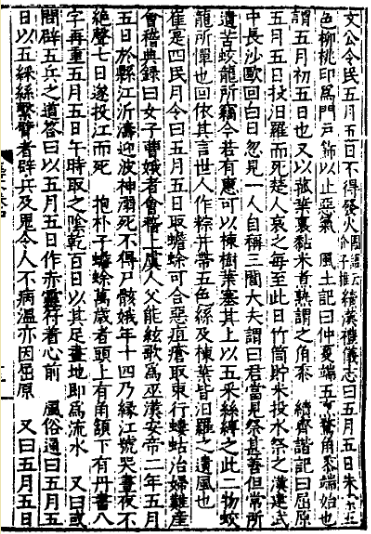 文公令民五月五日不得發火國語云為介子推 續漢禮儀志曰五月五日朱索五
色柳桃印為門戶飾以止惡氣 風土記曰仲夏端五烹鶩角黍端始也
謂五月初五日也又以菰葉裹黏米煮熟謂之角黍 續齊諧記曰屈原
五月五日投汨羅而死楚人哀之每至此日竹筒貯米投水祭之漢建武
中長沙歐回白日忽見一人自稱三閭大夫謂曰君當見祭甚善但常所
遺苦蛟龍所竊今若有惠可以楝樹葉塞其上以五采絲縛之此二物蛟
龍所憚也回依其言世人作粽并帶五色絲及楝葉皆汨羅之遺風也
崔寔四民月令曰五月五日取蟾蜍可合惡疽瘡取東行螻蛄治婦難產
會稽典錄曰女子曹娥者會稽上虞人父能絃歌為巫漢安帝二年五月
五日於縣江泝濤迎波神溺死不得尸骸娥年十四乃緣江號哭晝夜不
絕聲七日遂投江而死 抱朴子蟾蜍萬歲者頭上有角頷下有丹書八
字再重五月五日午時取之陰乾百日以其足畫地即為流水 又曰或
問辟五兵之道答曰以五月五日作赤靈符著心前 風俗通曰五月五
日以五綵絲繫臂者辟兵及鬼令人不病溫亦因屈原 又曰五月五日